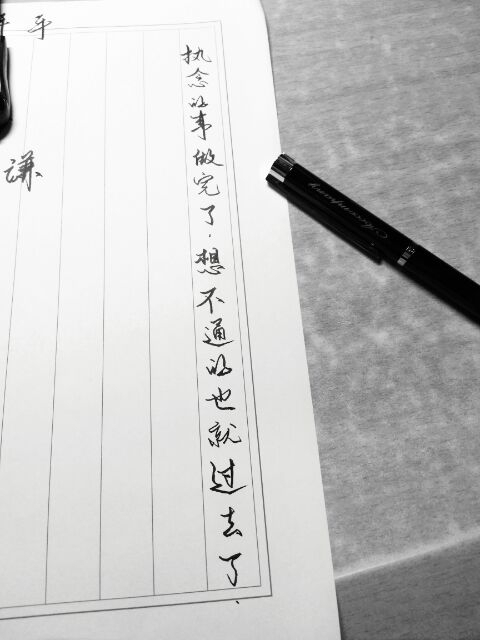 执念的事做完了.想不通的也就过去了.
平
谦